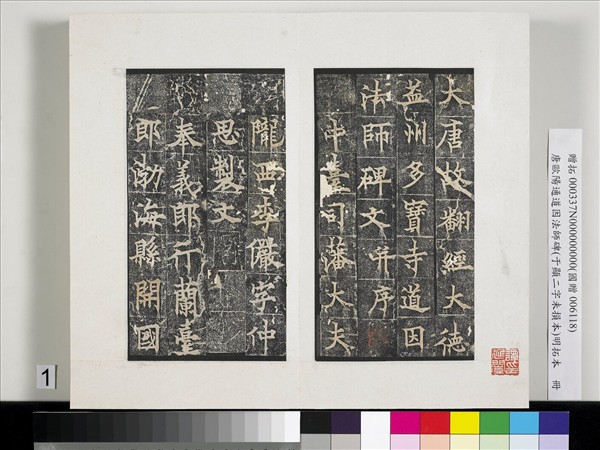 大唐故翻經大德
益州多寶寺道因
法師碑文并序
中臺司藩大夫
隴西李儼字仲
思製文
奉義郎行蘭臺
郎渤海縣開國
贈拓 000337N000000000(國贈 006118)
唐歐陽通道因法師碑(于顯二字未損本)明拓本 冊
1